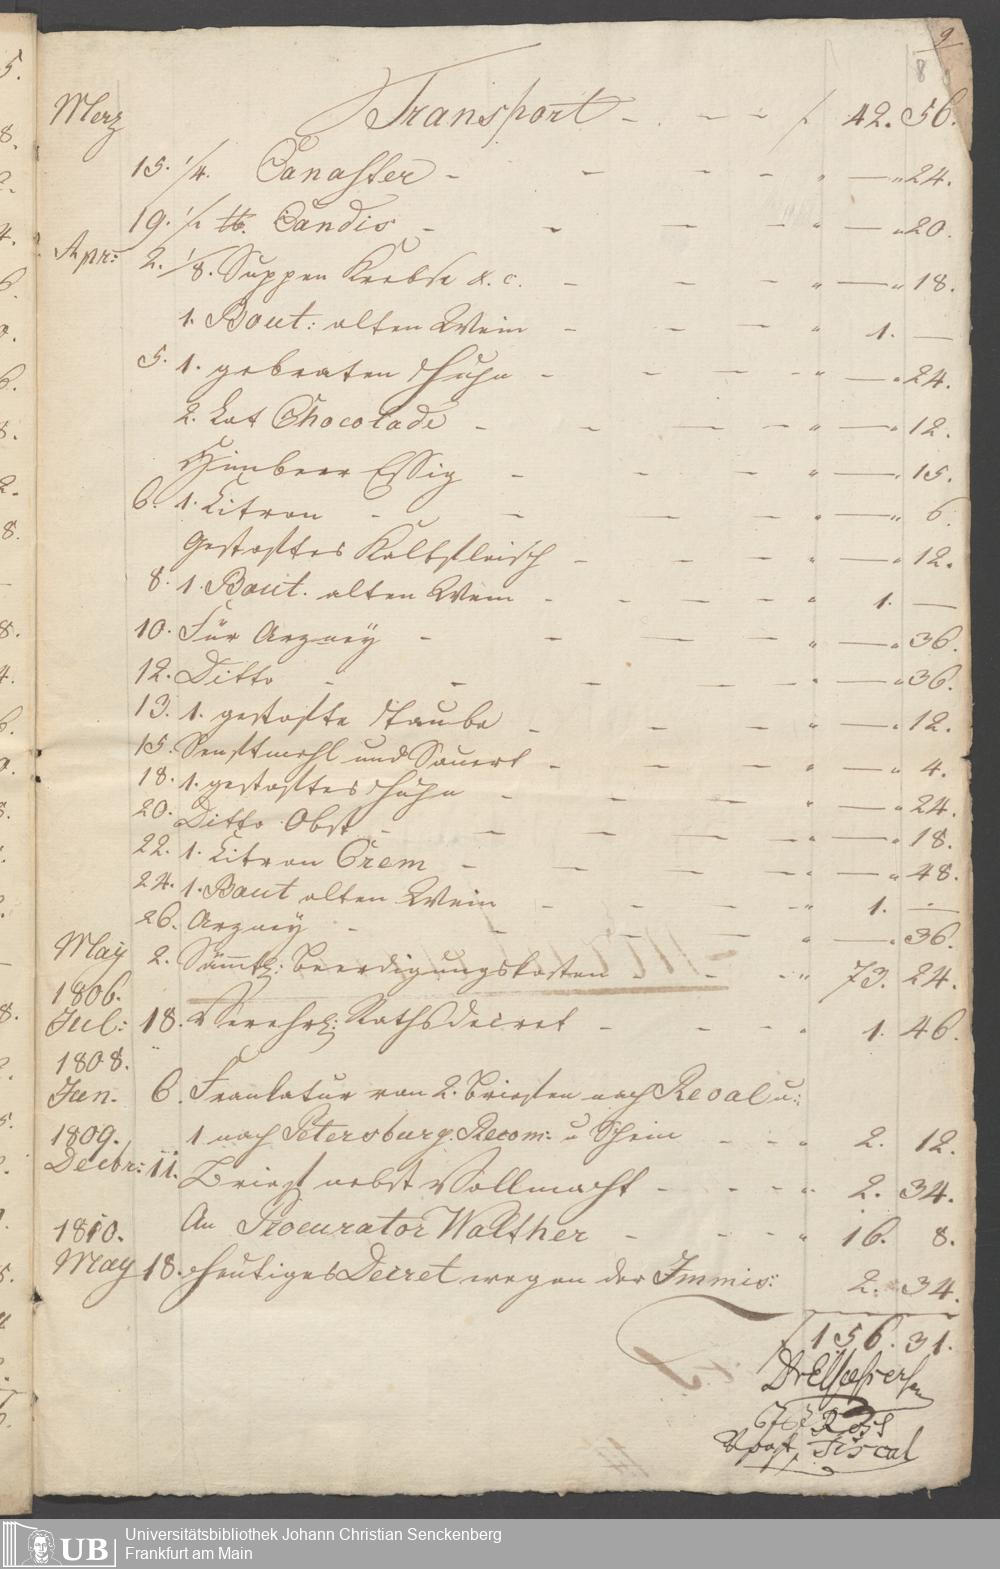 9
8
Merz Transport - - - f. 42. 56.
15. 1/4. Canaster - - - - " — " 24.
19. 1/2 ℔. Candis - - - - " — " 20.
Apr: 2. 1/8. Suppen Krebse &. c. - - - " — " 18.
1. Bout: alten Wein - - - " 1. —
5. 1. gebraten Huhn - - - - " — " 24.
2. Lot Chocolade - - - - " — " 12.
Himbeer Essig - - - " — " 15.
6. 1. Citron - - - - " — " 6.
Kalbfleisch - - - " — " 12.
8. 1. Bout. alten Wein - - - - " 1. —
10. Für Arzney - - - - " — " 36.
12. Ditto - - - - - " — " 36.
13. 1. Taube - - - " — " 12.
15. Senftmehl und - - - " — " 4.
18. 1. Huhn - - - " — " 24.
20. Ditto Obst - - - - " — " 18.
22. 1. Citron Crem - - - - " — " 48.
24. 1. Bout alten Wein - - - - " 1. —
26. Arzney - - - - " — " 36.
May 2. Sämtl: Beerdigungskosten - - - " 73. 24.
1806.
Jul: 18. Verehrl: Rathsdecret - - - " 1. 46.
1808.
Jun. 6. von 2. Briefen nach Reval u:
1809. 1 nach Petersburg. Recom: u Schein - - - " 2. 12.
Decbr: 11. Brief nebst Vollmacht - - - " 2. 34.
1810. An Procurator Walther - - - " 16. 8.
May 18. heutiges Decret wegen der Immis: 2. 34.
f 156. 31.
Fiscal
Universitätsbibliothek Johann Christian Senckenberg
UB Frankfurt am Main